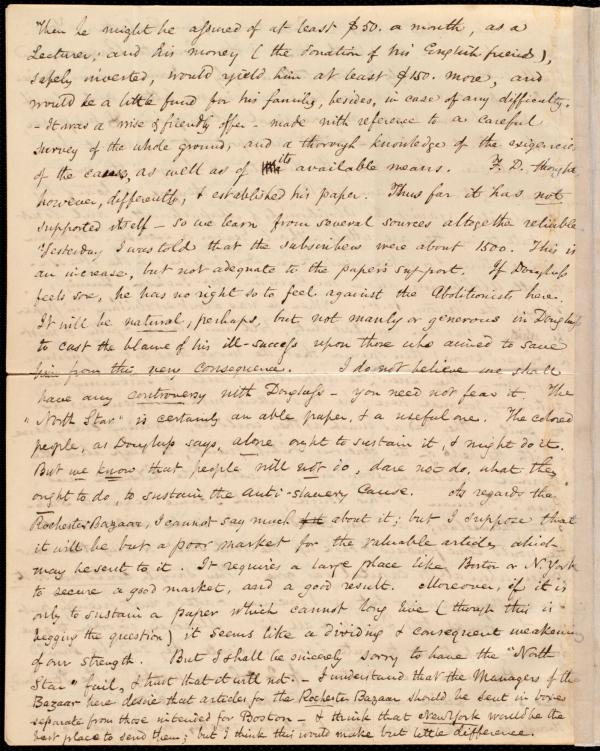 Then he might be assured of at least $50. a month, as a
Lecturer; and his money (the donation of his English friend),
safely invested, would yield him at least $150. more, and
would be a little fund for his family, besides, in case of any difficulty.
- It was a wise & friendly offer - made with reference to a careful
survey of the whole ground, and a thorough knowledge of the exigencies
of the cause, as well as of its available means. F. D. thought,
however, differently, & established his paper. Thus far it has not
supported itself - so we learn from several sources altogether reliable
Yesterday I was told that the subscribers were about 1500. This is
an increase, but not adequate to the paper's support. If Douglass
feels sore, he has no right so to feel against the Abolitionists here.
It will be natural, perhaps, but not manly or generous in Douglass
to cast the blame of his ill-success upon those who aimed to save
him from this very consequence. I do not believe we shall
have any controversy with Douglass - you need not fear it. The
"North Star" is certainly an able paper, & a useful one. The colored
people, as Douglass says, alone ought to sustain it, & might do it.
But we know that people will not do, dare not do, what they
ought to do, to sustain the Anti-Slavery Cause. As regards the
Rochester Bazaar, I cannot say much about it; but I suppose that
it will be but a poor market for the valuable articles which
may be sent to it. It requires a large place like Boston or N. York
to secure a good market, and a good result. Moreover, if it is
only to sustain a paper which cannot long live (though this is
begging the question) it seems like a dividing & consequent weakening
of our strength. But I shall be sincerely sorry to have the "North
Star" fail, & trust that it will not. - I understand that the Managers of the
Bazaar here desire that articles for the Rochester Bazaar should be sent in boxes
separate from those intended for Boston - & think that New York would be the
best place to send them; but I think this would make but little difference.